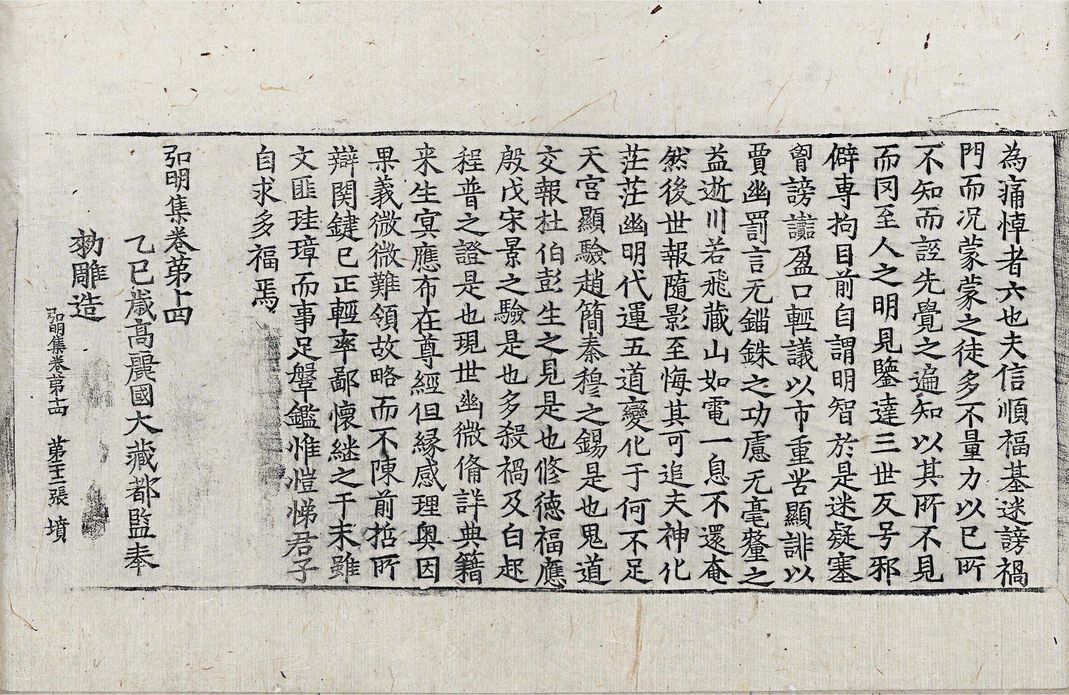 為痛悼者六也夫信順福基迷謗禍
門而况蒙蒙之徒多不量力以己所
不知而誣先覺之遍知以其所不見
而罔至人之明見鑒達三世反号邪
僻專拘目前自謂明智於是迷疑塞
胷謗讟盈口輕議以市重苦顯誹以
賈幽罰言无錙銖之功慮无毫釐之
益逝川若飛藏山如電一息不還奄
然後世報隨影至悔其可追夫神化
茫茫幽明代運五道變化于何不足
天宮顯驗趙簡秦穆之錫是也鬼道
交報杜伯彭生之見是也修德福應
殷戊宋景之驗是也多殺禍及白起
程普之證是也現世幽微俻詳典籍
来生冥應布在尊經但緣感理奧因
果義微微難領故略而不陳前哲所
辯関鍵已正輕率鄙懷継之于末雖
文匪珪璋而事足鞶鑑惟愷悌君子
自求多福焉
弘明集卷第十四
乙巳歲高麗國大藏都監奉
勑雕造
弘明集卷第十四 第張 墳